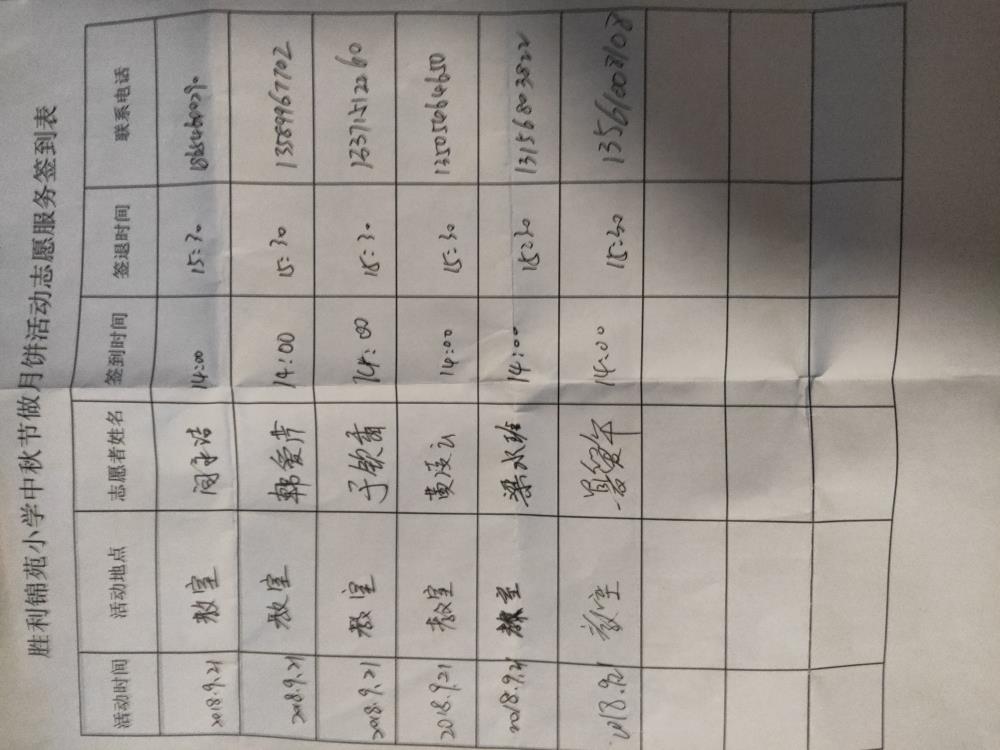 胜利锦苑小学中秋节做月饼活动志愿服务签到表
活动时间 活动地点 志愿者姓名 签到时间 签退时间 联系电话
2018.9.21 教室 14:00 15:30
2018.9.21 教室 韩爱芳 14:00 15:30 13589967702
2018.9.21 教室 于钦香 14:00 15:30 13371512260
2018.9.21 教室 黄凌云 14:00 15:30 13505464650
2018.9.21 教室 梁水班 14:00 15:30 13156803822
2018.9.21 教室 14:00 15:30 13561008108